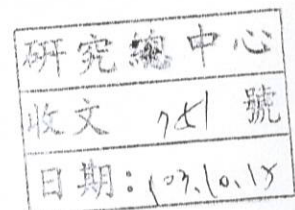 研究總中心
收文 751 號
日期：103.10.15